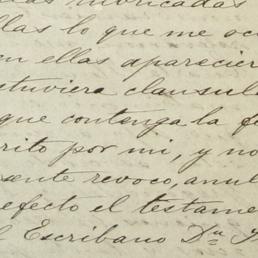 rubricadas
llas lo que me oc
en ellas aparecier
stuviera clausul
que contenga la f
rito por mi, y no
sente revoco, anul
efecto el testame
l Escribano Dn